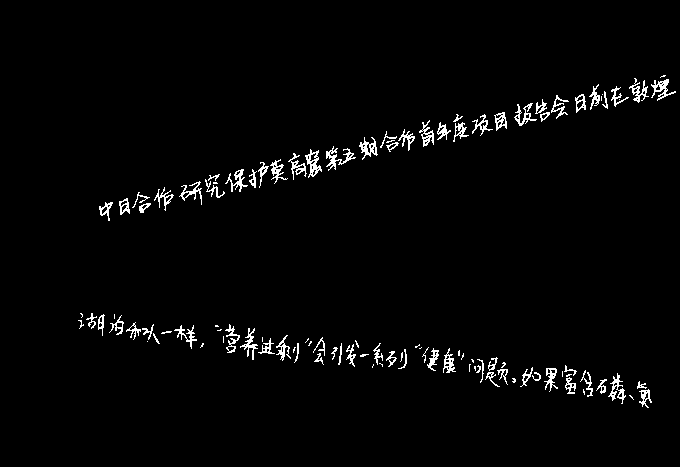 中日合作研究保护莫高窟第五期合作首年度项目报告会日前在敦煌
湖泊和人一样，“营养过剩”会引发一系列“健康”问题。如果富含磷、氮